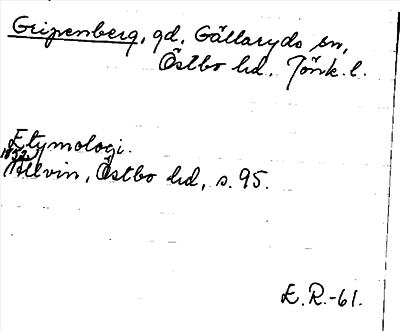 Gripenberg, gd, Gällaryds sn,
Östbo hd, Jönk. l.
Etymologi.
1852
Allvin, Östbo hd, s. 95.
E. R.-61.